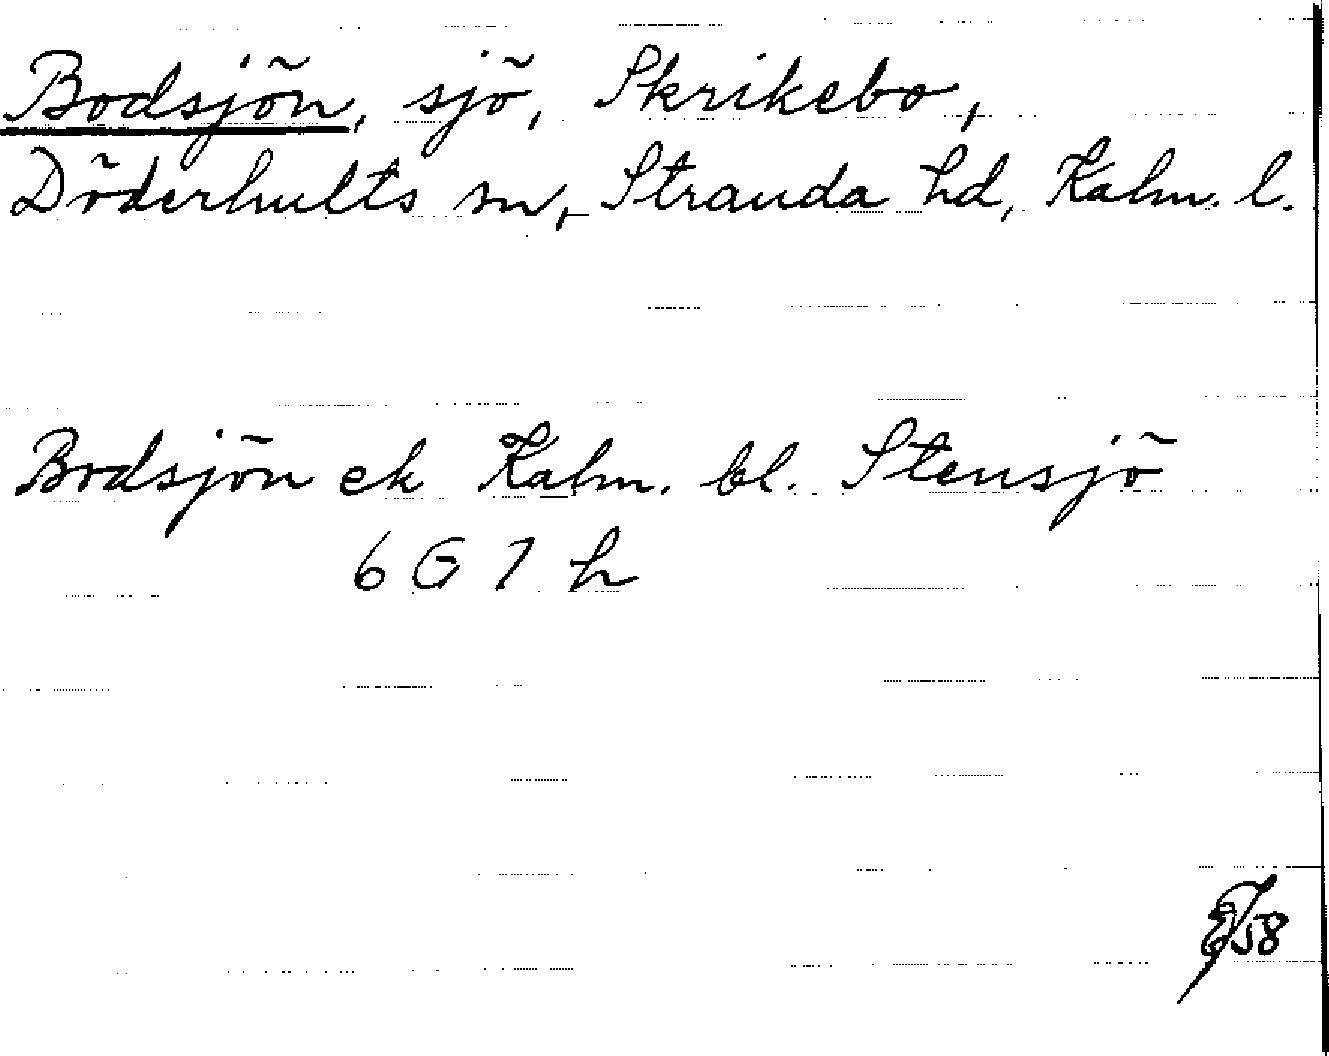 Bodsjön, sjö, Skrikebo,
Döderhults sn, Stranda hd, Kalm. l.
Bodsjön ek Kalm. bl. Stensjö
6 G 7 h
58